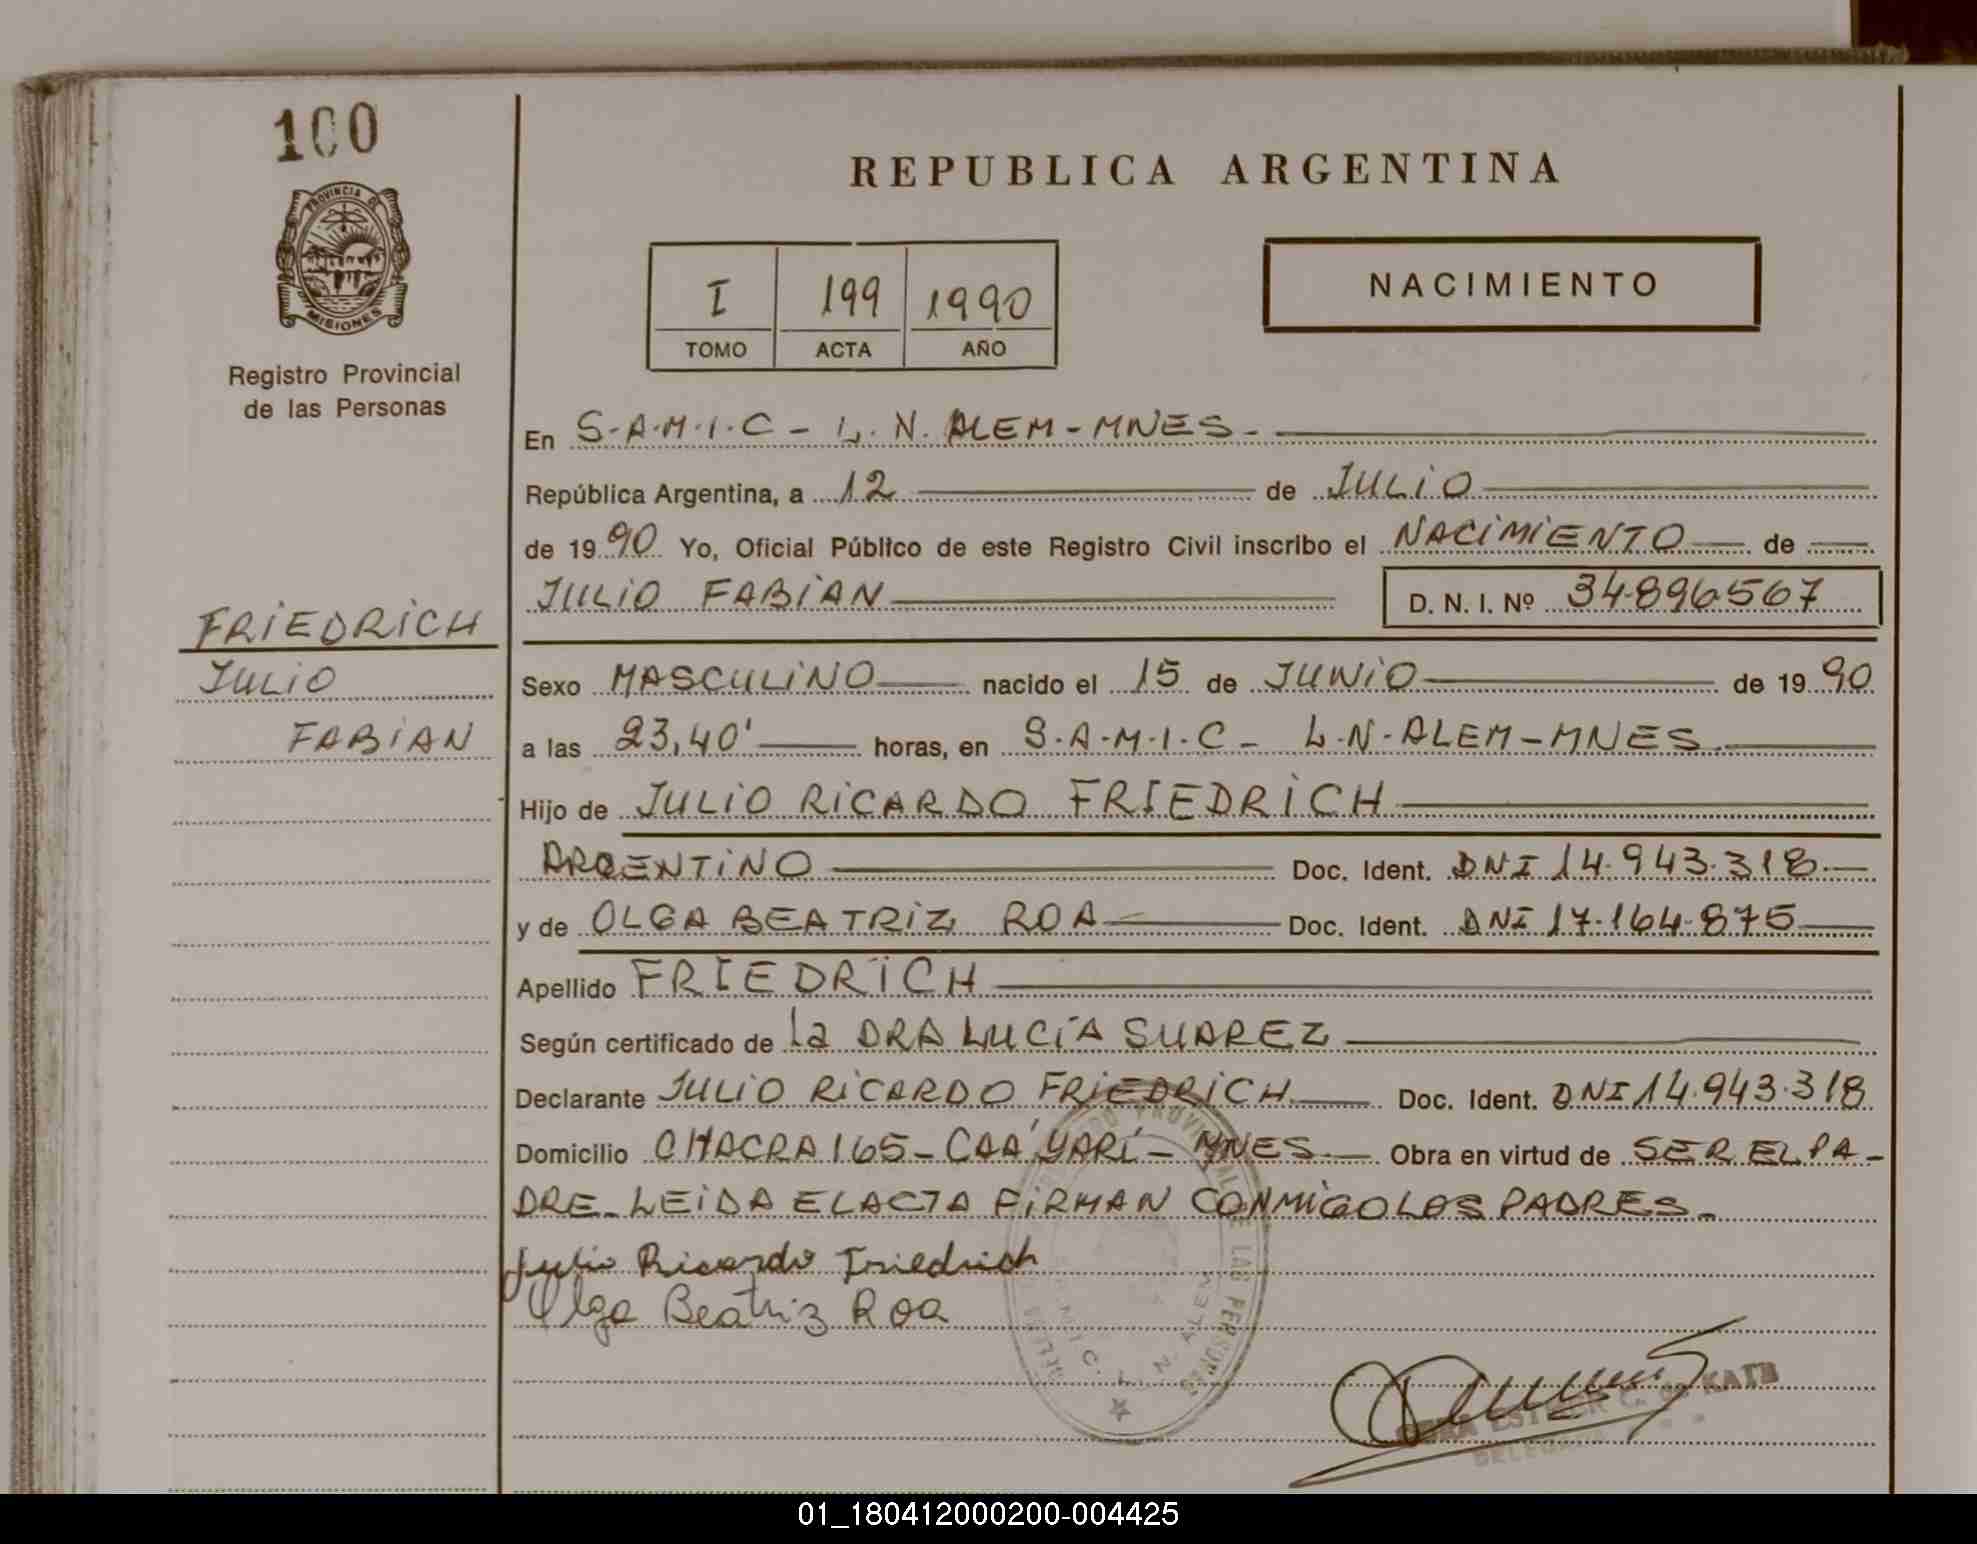 100
PROVINCIA DE
MISIONES
Registro Provincial
de las Personas
REPUBLICA ARGENTINA
I 199 1990
TOMO ACTA AÑO
NACIMIENTO
En S.A.M.I.C - L. N. ALEM - MNES -
República Argentina, a 12 de JULIO
de 1990 Yo, Oficial Público de este Registro Civil inscribo el NACIMIENTO de
JULIO FABIAN D. N. I. Nº 34896567
FRIEDRICH
JULIO
FABIAN
Sexo MASCULINO nacido el 15 de JUNIO de 1990
a las 23,40' horas, en S.A.M.I.C - L.N. ALEM - MNES
Hijo de JULIO RICARDO FRIEDRICH
ARGENTINO Doc. Ident. DNI 14.943.318
y de OLGA BEATRIZ ROA Doc. Ident. DNI 17.164.875
Apellido FRIEDRICH
Según certificado de La DRA LUCÍA SUAREZ
Declarante JULIO RICARDO FRIEDRICH Doc. Ident. DNI 14.943.318
Domicilio CHACRA 165 - CAA'YARÍ - MNES Obra en virtud de SER EL PA-
DRE - LEIDA EL ACTA FIRMAN CONMIGO LOS PADRES -
Julio Ricardo Friedrich
Olga Beatriz Roa
L. N. ALEM
ESTHER C. de KATZ
01_180412000200-004425